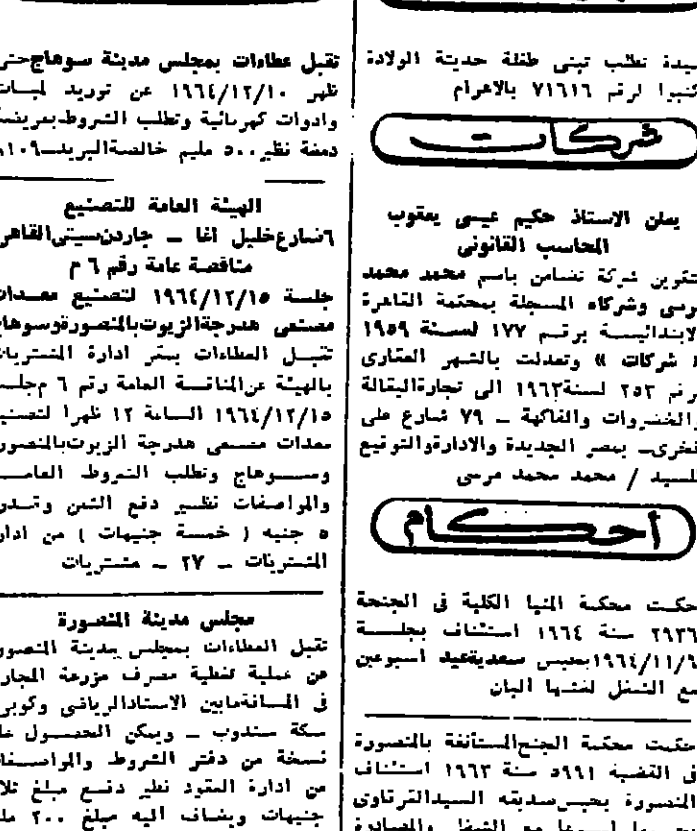 سيدة تطلب تبنى طفلة حديثة الولادة
كتبوا لرقم ٧١٦١٦ بالاهرام
شركات
يعلن الاستاذ حكيم عيسى يعقوب
المحاسب القانونى
بتكوين شركة تضامن باسم محمد محمد
مرسى وشركاه المسجلة بمحكمة القاهرة
الابتدائيــة برقــم ١٧٧ لســنة ١٩٥٩
« شركات » وتعدلت بالشهر العقارى
برقم ٢٥٣ لسنة ١٩٦٢ الى تجارة البقالة
والخضروات والفاكهة ــ ٧٩ شارع على
فخرى ــ بمصر الجديدة والادارة والتوقيع
للسيد / محمد محمد مرسى
أحكام
حكمت محكمة المنيا الكلية فى الجنحة
٢٩٣٦ سنة ١٩٦٤ استئناف بجلســة
١٩٦٤/١١/٦ بحبس سعدية عيد اسبوعين
مع الشغل لغشها البان
حكمت محكمة الجنح المستأنفة بالمنصورة
فى القضية ٥٩٩١ سنة ١٩٦٣ استئناف
المنصورة بحبس صديقه السيد القرقاوى
مع الشغل والمصادرة
تقبل عطاءات بمجلس مدينة سوهاج حتى
ظهر ١٩٦٤/١٢/١٠ عن توريد لمبات
وادوات كهربائية وتطلب الشروط بعريضة
دمغة نظير ٥٠٠ مليم خالصة البريد ــ ١٠٩
الهيئة العامة للتصنيع
٦ شارع خليل اغا ــ جاردن سيتى القاهرة
مناقصة عامة رقم ٦ م
جلسة ١٩٦٤/١٢/١٥ لتصنيع معــدات
مصنعى هدرجة الزيوت بالمنصورة وسوهاج
تقبــل العطاءات بمقر ادارة المشتريات
بالهيئة عن المناقصة العامة رقم ٦ م جلسة
١٩٦٤/١٢/١٥ الساعة ١٢ ظهرا لتصنيع
معدات مصنعى هدرجة الزيوت بالمنصورة
وســوهاج وتطلب الشروط العامــة
والمواصفات نظــير دفع الثمن وقــدره
٥ جنيه ( خمسة جنيهات ) من ادارة
المشتريات ــ ٢٧ ــ مشتريات
مجلس مدينة المنصورة
تقبل العطاءات بمجلس مدينة المنصورة
عن عملية تغطية مصرف مزرعة المجارى
فى المسافة مابين الاستاد الرياضى وكوبرى
سكة سندوب ــ ويمكن الحصــول على
نسخة من دفتر الشروط والمواصفــات
من ادارة العقود نظير دفــع مبلغ ثلاثة
جنيهات ويضاف اليه مبلغ ٢٠٠ مليم